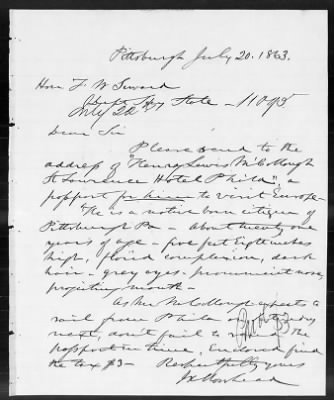 Pittsburgh July 20. 1863.
Hon F. W Seward
Dept of State - 11095
July 22
Dear Sir
Please send to the
address of "Henry Lewis McCollough
St Lawrence Hotel Phila", a
passport for him to visit Europe -
"He is a native born citizen of
Pittsburgh Pa - About twenty one
years of age - five feet Eight inches
high, florid complexion, dark
hair - grey eyes - prominent nose,
projecting mouth -
As Mr McCollough expects to
sail from Phila on Saturday
next, don't fail to the
passport in time, Enclosed find
the tax $3 - Respectfully yours
Moorhead